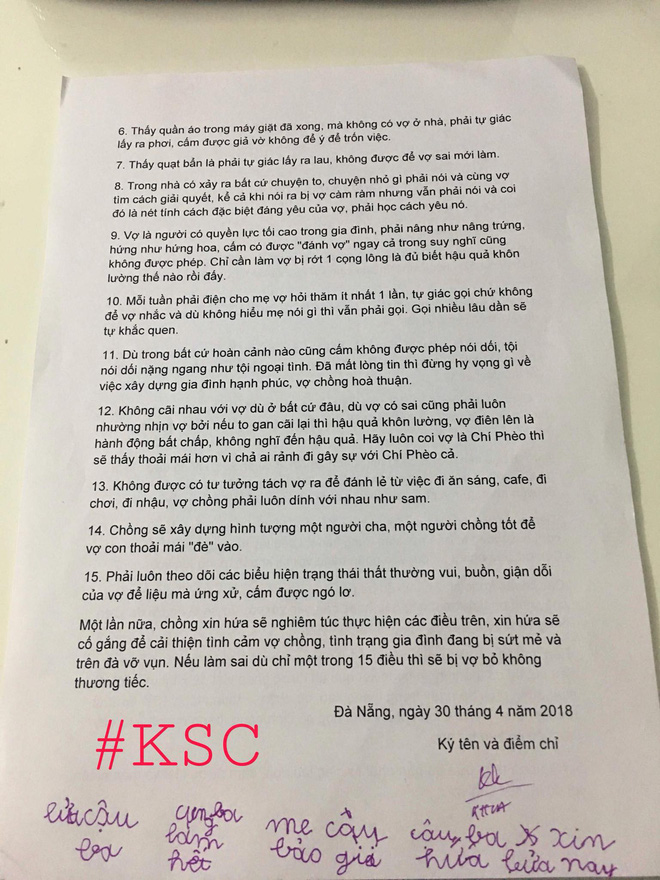 6. Thấy quần áo trong máy giặt đã xong, mà không có vợ ở nhà, phải tự giác
lấy ra phơi, cấm được giả vờ không để ý để trốn việc.
7. Thấy quạt bẩn là phải tự giác lấy ra lau, không được để vợ sai mới làm.
8. Trong nhà có xảy ra bất cứ chuyện to, chuyện nhỏ gì phải nói và cùng vợ
tìm cách giải quyết, kể cả khi nói ra bị vợ càm ràm nhưng vẫn phải nói và coi
đó là nét tính cách đặc biệt đáng yêu của vợ, phải học cách yêu nó.
9. Vợ là người có quyền lực tối cao trong gia đình, phải nâng như nâng trứng,
hứng như hứng hoa, cấm có được "đánh vợ" ngay cả trong suy nghĩ cũng
không được phép. Chỉ cần làm vợ bị rớt 1 cọng lông là đủ biết hậu quả khôn
lường thế nào rồi đấy.
10. Mỗi tuần phải điện cho mẹ vợ hỏi thăm ít nhất 1 lần, tự giác gọi chứ không
để vợ nhắc và dù không hiểu mẹ nói gì thì vẫn phải gọi. Gọi nhiều lâu dần sẽ
tự khắc quen.
11. Dù trong bất cứ hoàn cảnh nào cũng cấm không được phép nói dối, tội
nói dối nặng ngang như tội ngoại tình. Đã mất lòng tin thì đừng hy vọng gì về
việc xây dựng gia đình hạnh phúc, vợ chồng hoà thuận.
12. Không cãi nhau với vợ dù ở bất cứ đâu, dù vợ có sai cũng phải luôn
nhường nhịn vợ bởi nếu to gan cãi lại thì hậu quả khôn lường, vợ điên lên là
hành động bất chấp, không nghĩ đến hậu quả. Hãy luôn coi vợ là Chí Phèo thì
sẽ thấy thoải mái hơn vì chả ai rảnh đi gây sự với Chí Phèo cả.
13. Không được có tư tưởng tách vợ ra để đánh lẻ từ việc đi ăn sáng, cafe, đi
chơi, đi nhậu, vợ chồng phải luôn dính với nhau như sam.
14. Chồng sẽ xây dựng hình tượng một người cha, một người chồng tốt để
vợ con thoải mái "đè" vào.
15. Phải luôn theo dõi các biểu hiện trạng thái thất thường vui, buồn, giận dỗi
của vợ để liệu mà ứng xử, cấm được ngó lơ.
Một lần nữa, chồng xin hứa sẽ nghiêm túc thực hiện các điều trên, xin hứa sẽ
cố gắng để cải thiện tình cảm vợ chồng, tình trạng gia đình đang bị sứt mẻ và
trên đà vỡ vụn. Nếu làm sai dù chỉ một trong 15 điều thì sẽ bị vợ bỏ không
thương tiếc.
Đà Nẵng, ngày 30 tháng 4 năm 2018
Ký tên và điểm chỉ
#KSC
mẹ cậy
xin
hết
bảo
hứa